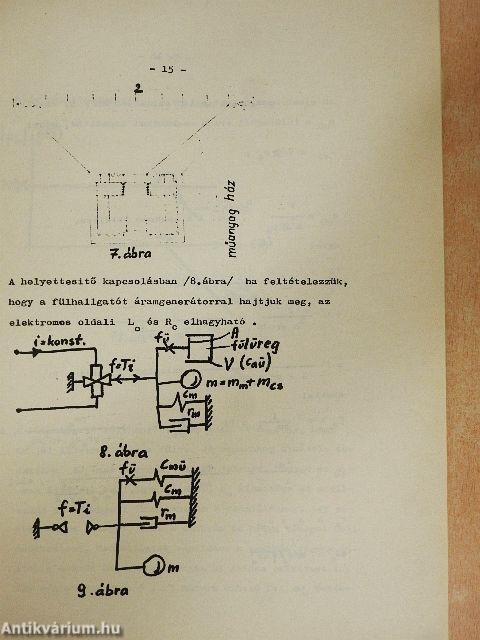 - 15 -
2
műanyag ház
7. ábra
A helyettesitő kapcsolásban /8.ábra/ ha feltételezzük,
hogy a fülhallgatót áramgenerátorral hajtjuk meg, az
elektromos oldali L_o és R_c elhagyható .
i=konst.
f=Ti
f_ü
A
fülüreg
V (c_aü)
m=m_m+m_cs
c_m
r_m
8. ábra
f_ü
c_mü
c_m
r_m
f=Ti
m
9. ábra
Antikvárium.hu